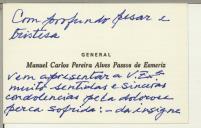 Com profundo pesar e
tristeza
GENERAL
Manuel Carlos Pereira Alves Passos de Esmeriz
vem apresentar a V. Ex.ª
muito sentidas e sinceras
condolencias pela dolorosa
perca sofrida: - da insigne